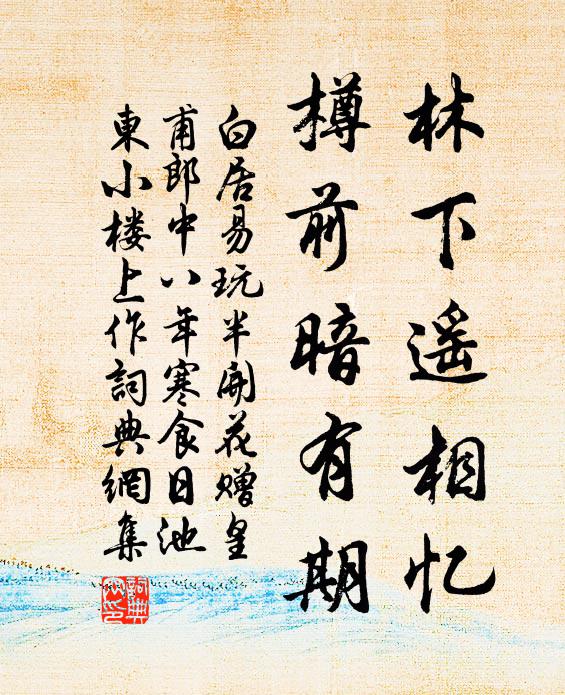 林下遥相忆
樽前暗有期
白居易玩半開花赠皇
甫郎中八年寒食日池
東小楼上作詞典網集